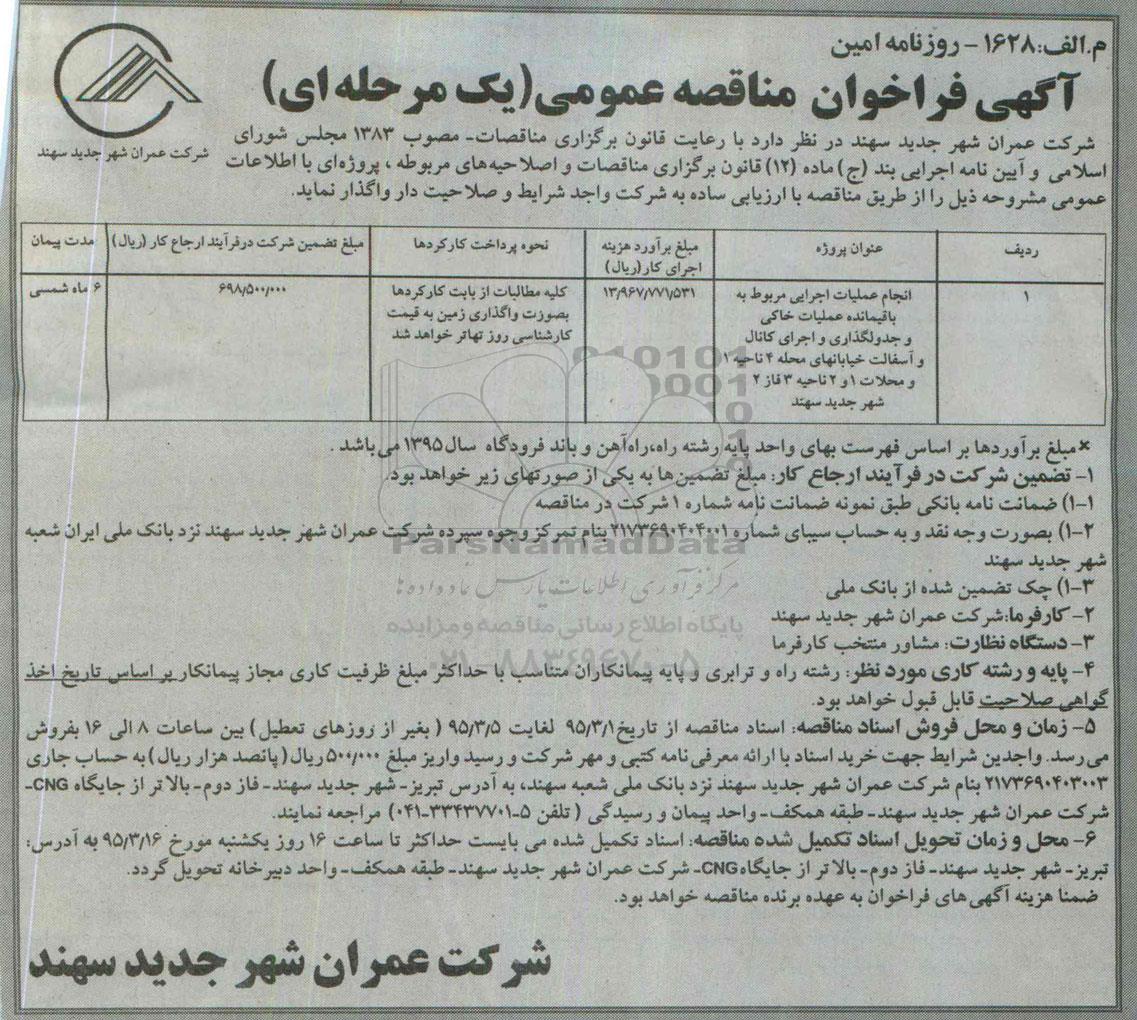 م.الف:۱۶۲۸ - روزنامه امین
آگهی فراخوان مناقصه عمومی(یک مرحله ای)
شرکت عمران شهر جدید سهند
شرکت عمران شهر جدید سهند در نظر دارد با رعایت قانون برگزاری مناقصات- مصوب ۱۳۸۳ مجلس شورای
اسلامی و آیین نامه اجرایی بند (ج) ماده (۱۲) قانون برگزاری مناقصات و اصلاحیه‌های مربوطه ، پروژه‌ای با اطلاعات
عمومی مشروحه ذیل را از طریق مناقصه با ارزیابی ساده به شرکت واجد شرایط و صلاحیت دار واگذار نماید.
ردیف
عنوان پروژه
مبلغ برآورد هزینه
اجرای کار(ریال)
نحوه پرداخت کارکردها
مبلغ تضمین شرکت درفرآیند ارجاع کار (ریال)
مدت پیمان
۱
انجام عملیات اجرایی مربوط به
باقیمانده عملیات خاکی
و جدولگذاری و اجرای کانال
و آسفالت خیابانهای محله ۴ ناحیه ۱
و محلات ۱ و ۲ ناحیه ۳ فاز ۲
شهر جدید سهند
۱۳/۹۶۷/۷۷۱/۵۳۱
کلیه مطالبات از بابت کارکردها
بصورت واگذاری زمین به قیمت
کارشناسی روز تهاتر خواهد شد
۶۹۸/۵۰۰/۰۰۰
۶ ماه شمسی
×مبلغ برآوردها بر اساس فهرست بهای واحد پایه رشته راه،راه‌آهن و باند فرودگاه سال ۱۳۹۵ می باشد .
۱- تضمین شرکت در فرآیند ارجاع کار: مبلغ تضمین‌ها به یکی از صورتهای زیر خواهد بود.
۱-۱) ضمانت نامه بانکی طبق نمونه ضمانت نامه شماره ۱ شرکت در مناقصه
۱-۲) بصورت وجه نقد و به حساب سیبای شماره ۲۱۷۳۶۹۰۴۰۴۰۰۱ بنام تمرکز وجوه سپرده شرکت عمران شهر جدید سهند نزد بانک ملی ایران شعبه
شهر جدید سهند
۱-۳) چک تضمین شده از بانک ملی
۲- کارفرما:شرکت عمران شهر جدید سهند
۳- دستگاه نظارت: مشاور منتخب کارفرما
۴- پایه و رشته کاری مورد نظر: رشته راه و ترابری و پایه پیمانکاران متناسب با حداکثر مبلغ ظرفیت کاری مجاز پیمانکار بر اساس تاریخ اخذ
گواهی صلاحیت قابل قبول خواهد بود.
۵- زمان و محل فروش اسناد مناقصه: اسناد مناقصه از تاریخ ۹۵/۳/۱ لغایت ۹۵/۳/۵ ( بغیر از روزهای تعطیل) بین ساعات ۸ الی ۱۶ بفروش
می رسد. واجدین شرایط جهت خرید اسناد با ارائه معرفی نامه کتبی و مهر شرکت و رسید واریز مبلغ ۵۰۰/۰۰۰ ریال (پانصد هزار ریال) به حساب جاری
۲۱۷۳۶۹۰۴۰۳۰۰۳ بنام شرکت عمران شهر جدید سهند نزد بانک ملی شعبه سهند، به آدرس تبریز- شهر جدید سهند- فاز دوم- بالا تر از جایگاه CNG-
شرکت عمران شهر جدید سهند- طبقه همکف- واحد پیمان و رسیدگی ( تلفن ۵-۳۳۴۳۷۷۰۱-۰۴۱) مراجعه نمایند.
۶- محل و زمان تحویل اسناد تکمیل شده مناقصه: اسناد تکمیل شده می بایست حداکثر تا ساعت ۱۶ روز یکشنبه مورخ ۹۵/۳/۱۶ به آدرس:
تبریز- شهر جدید سهند- فاز دوم- بالا تر از جایگاه CNG- شرکت عمران شهر جدید سهند- طبقه همکف- واحد دبیرخانه تحویل گردد.
ضمنا هزینه آگهی های فراخوان به عهده برنده مناقصه خواهد بود.
شرکت عمران شهر جدید سهند
ParsNamadData
مرکز فرآوری اطلاعات پارس نماد داده‌ها
پایگاه اطلاع رسانی مناقصه و مزایده
۰۲۱-۸۸۳۴۹۶۷۰-۵